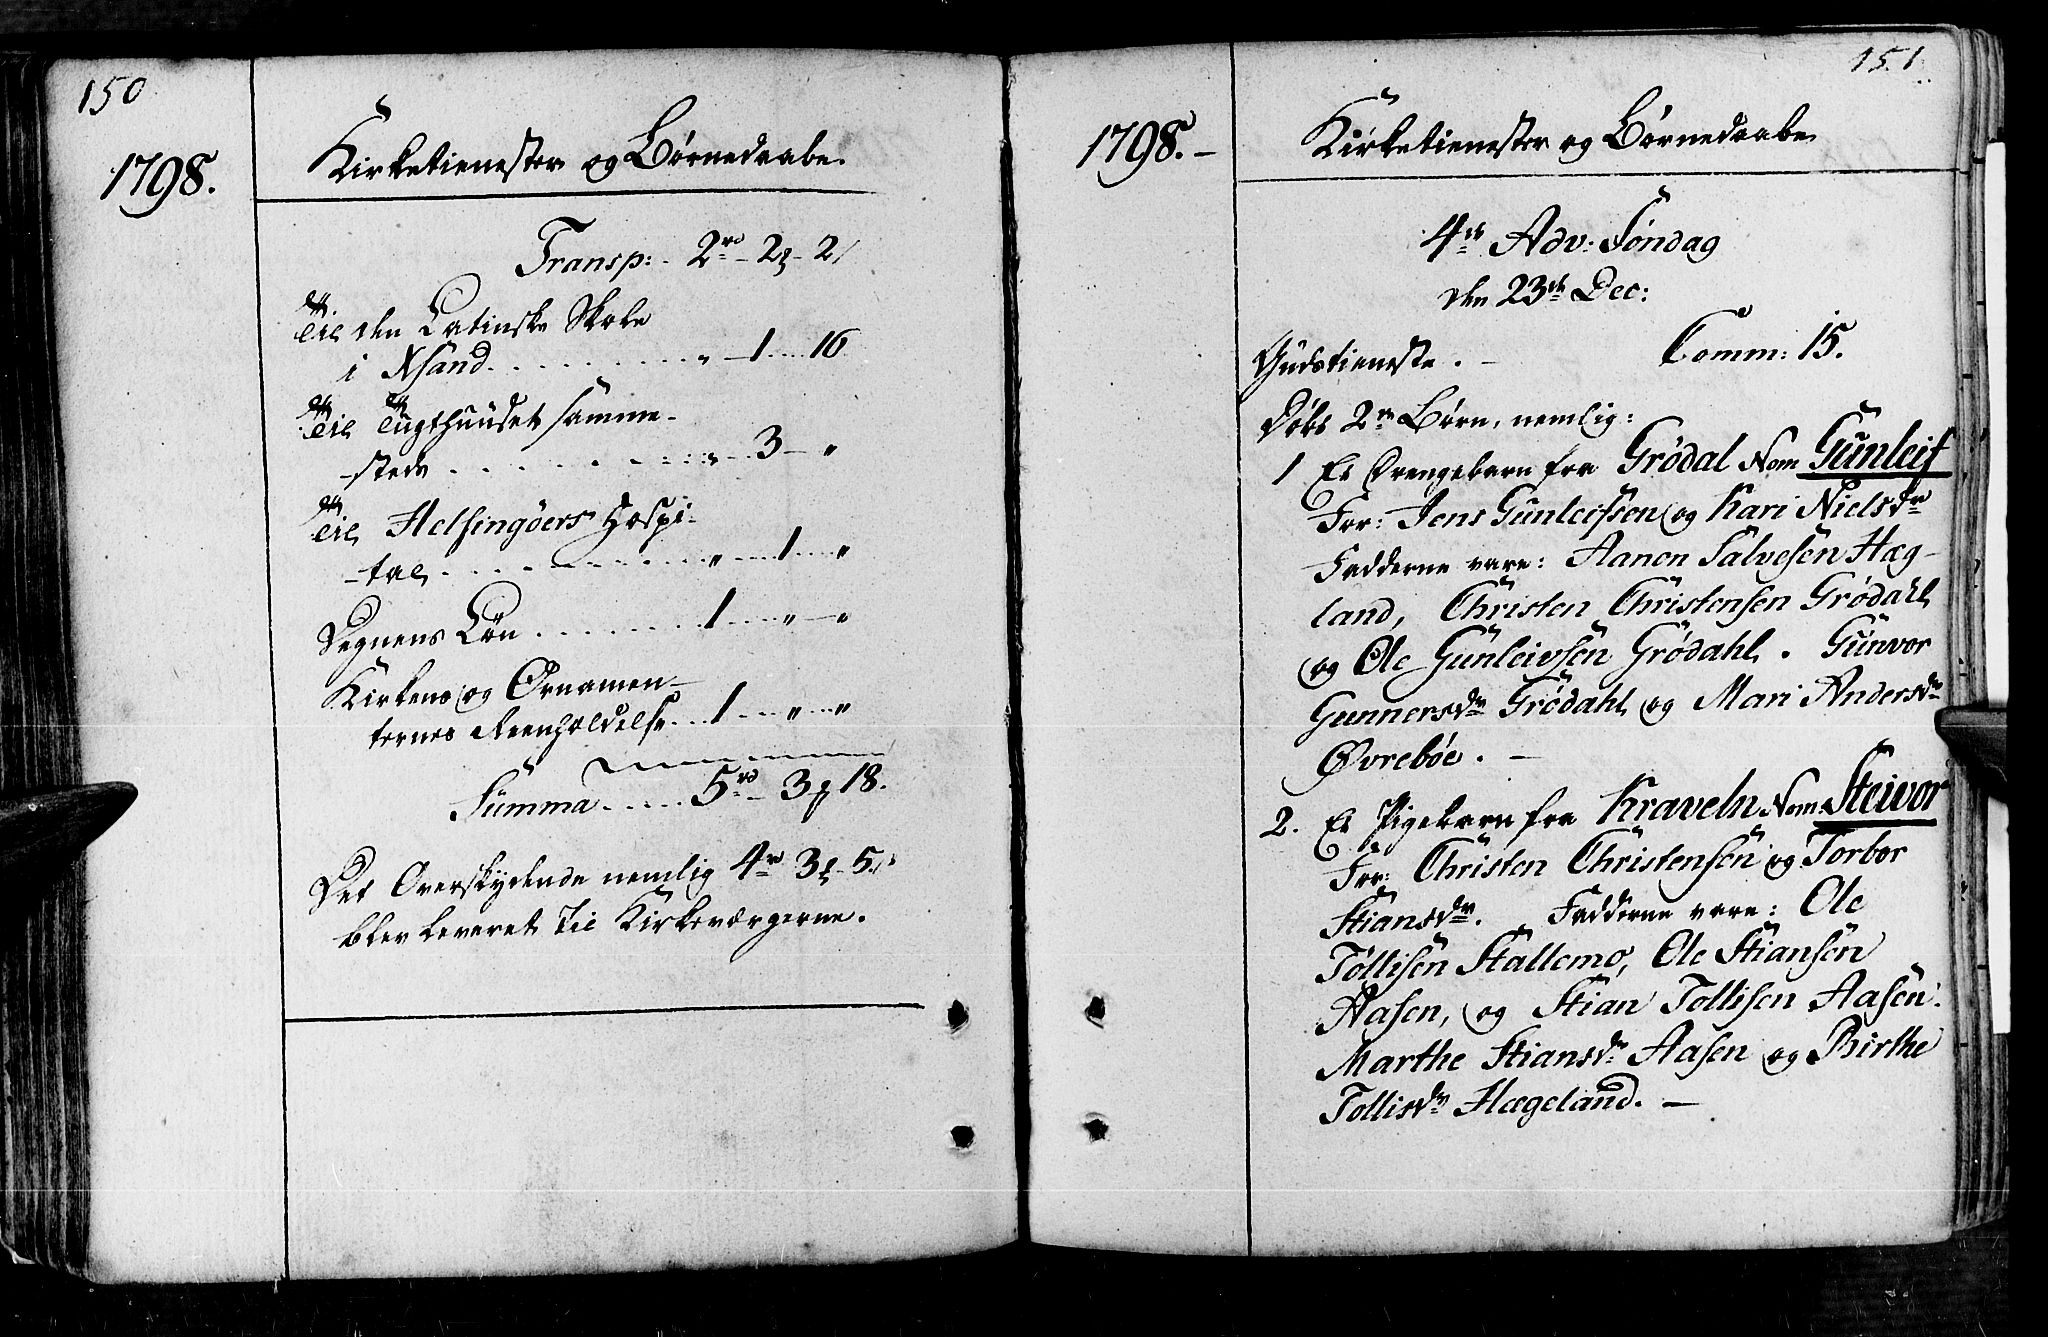 150
1798.
Kirketienester og Børnedaabe.
Transp: - 2rd - 2 - 2
Til den Latinske Skole
i Xsand. . . . . . . . . " - 1 . . . 16
Til Tugthuuset samme-
-steds . . . . . . . . . " . . . 3 - "
Til Helsingøers Hospi-
-tal . . . . . . . . . " . . . 1 . . . "
Degnens Løn . . . . . . . 1 . . . " - "
Kirkens og Ornamen-
ternes Reenholdelse . . . 1 . . . " . . . "
Summa . . . . . 5rd - 3 18.
Det Overskydende nemlig 4rd 3 - 5
blev leveret til Kirkeværgerne.
151
1798. -
Kirketienester og Børnedaabe
4de Adv: Søndag
den 23de Dec:
Gudstieneste. - Comm: 15.
Døbt 2de Børn, nemlig:
1 Et Drengebarn fra Grødal Nom Gunleif
For: Jens Gunleifssen og Kari Nielsdr
Fadderne vare: Aanon Salvesen Hæg-
land, Christen Christensen Grødahl
og Ole Gunleivsen Grødahl. Gunvor
Gunnersdr Grødahl og Mari Andersdr
Øvrebøe. -
2. Et Pigebarn fra Kraveln Nom: Steivor
For: Christen Christensen og Torbor
Stiansdr. Fadderne vare: Ole
Tollisen Stallemo, Ole Stiansen
Aasen, og Stian Tollisen Aasen.
Marthe Stiansdr Aasen og Birthe
Tollisdr Hægeland. -